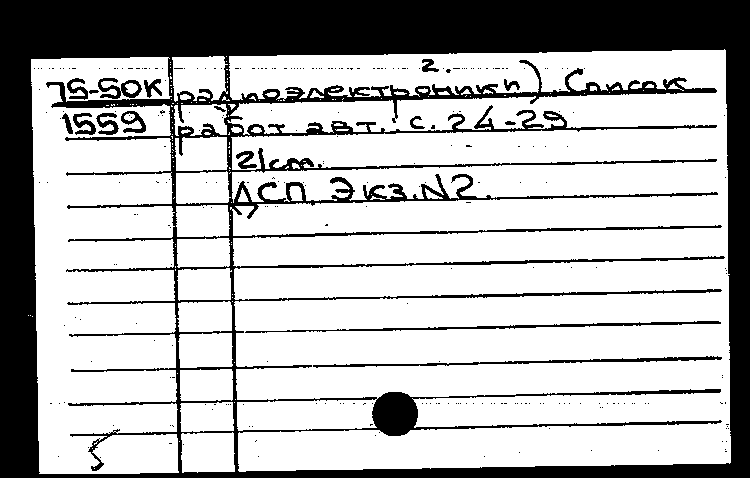 2.
75-50К радиоэлектроники). Список
1559 работ авт.: с. 24-29
21cm.
ДСП. Экз. N2.
5